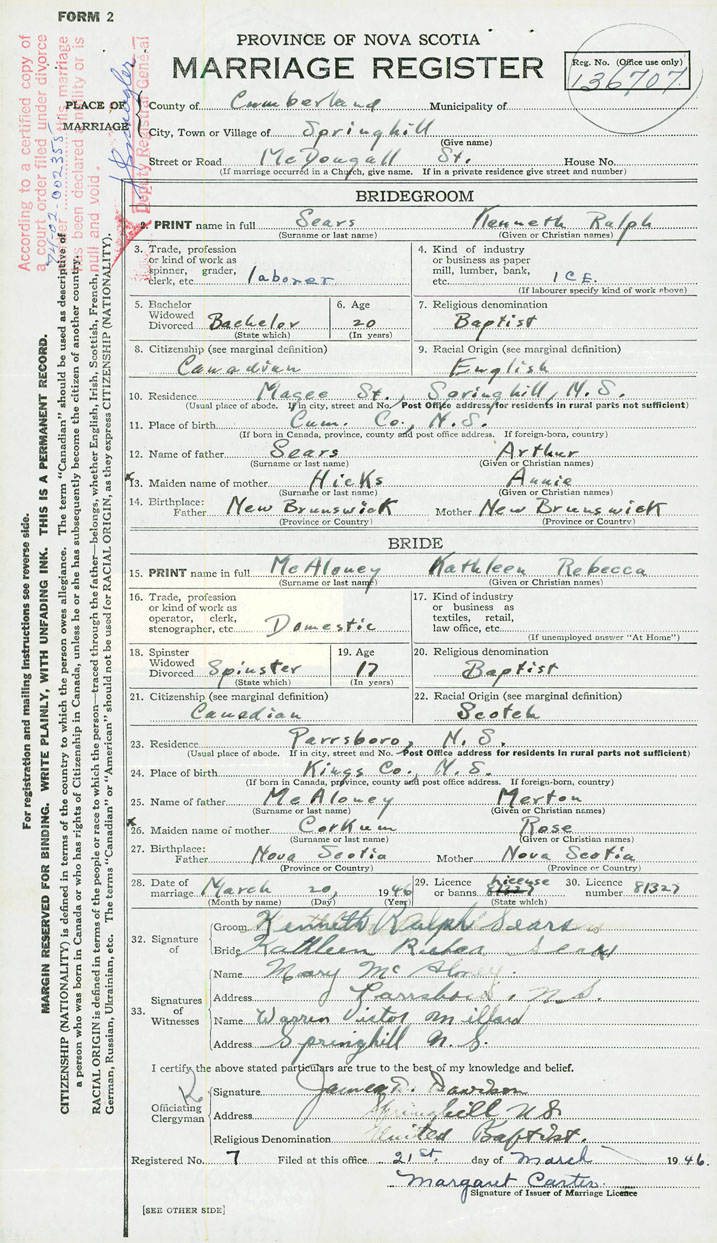 FORM 2
PROVINCE OF NOVA SCOTIA
MARRIAGE REGISTER
Reg. No. (Office use only)
136707
According to a certified copy of
a court order filed under divorce
this marriage
has been declared a nullity or is
null and void.
Deputy Registrar General
PLACE OF MARRIAGE
County of Cumberland Municipality of
City, Town or Village of Springhill
(Give name)
Street or Road McDougall St. House No.
(If marriage occurred in a Church, give name. If in a private residence give street and number)
BRIDEGROOM
2. PRINT name in full Sears Kenneth Ralph
(Surname or last name) (Given or Christian names)
3. Trade, profession
or kind of work as
spinner, grader,
clerk, etc. laborer
4. Kind of industry
or business as paper
mill, lumber, bank,
etc. ICE.
(If labourer specify kind of work above)
5. Bachelor
Widowed
Divorced Bachelor
(State which)
6. Age
20
(In years)
7. Religious denomination
Baptist
8. Citizenship (see marginal definition)
Canadian
9. Racial Origin (see marginal definition)
English
10. Residence Magee St., Springhill, N.S.
(Usual place of abode. If in city, street and No. Post Office address for residents in rural parts not sufficient)
11. Place of birth Cum. Co., N.S.
(If born in Canada, province, county and post office address. If foreign-born, country)
12. Name of father Sears Arthur
(Surname or last name) (Given or Christian names)
x 13. Maiden name of mother Hicks Annie
(Surname or last name) (Given or Christian names)
14. Birthplace:
Father New Brunswick Mother New Brunswick
(Province or Country) (Province or Country)
BRIDE
15. PRINT name in full McAloney Kathleen Rebecca
(Surname or last name) (Given or Christian names)
16. Trade, profession
or kind of work as
operator, clerk,
stenographer, etc. Domestic
17. Kind of industry
or business as
textiles, retail,
law office, etc.
(If unemployed answer "At Home")
18. Spinster
Widowed
Divorced Spinster
(State which)
19. Age
17
(In years)
20. Religious denomination
Baptist
21. Citizenship (see marginal definition)
Canadian
22. Racial Origin (see marginal definition)
Scotch
23. Residence Parrsboro, N.S.
(Usual place of abode. If in city, street and No. Post Office address for residents in rural parts not sufficient)
24. Place of birth Kings Co., N.S.
(If born in Canada, province, county and post office address. If foreign-born, country)
25. Name of father McAloney Merton
(Surname or last name) (Given or Christian names)
x 26. Maiden name of mother Corkum Rose
(Surname or last name) (Given or Christian names)
27. Birthplace:
Father Nova Scotia Mother Nova Scotia
(Province or Country) (Province or Country)
28. Date of marriage March 20, 1946
(Month by name) (Day) (Year)
29. Licence or banns License
(State which)
30. Licence number 81327
32. Signature of
Groom Kenneth Ralph Sears
Bride Kathleen Sears
33. Signatures of Witnesses
Name Mary McAloney
Address Parrsboro, N.S.
Name Warren Victor Millard
Address Springhill N.S.
I certify the above stated particulars are true to the best of my knowledge and belief.
Officiating Clergyman
Signature James D. Davidson
Address Springhill N.S.
Religious Denomination United Baptist.
Registered No. 7 Filed at this office 21st. day of March 1946.
Margaret Carter
Signature of Issuer of Marriage Licence
[SEE OTHER SIDE]
For registration and mailing instructions see reverse side.
MARGIN RESERVED FOR BINDING. WRITE PLAINLY, WITH UNFADING INK. THIS IS A PERMANENT RECORD.
CITIZENSHIP (NATIONALITY) is defined in terms of the country to which the person owes allegiance. The term "Canadian" should be used as descriptive of
a person who was born in Canada or who has rights of Citizenship in Canada, unless he or she has subsequently become the citizen of another country.
RACIAL ORIGIN is defined in terms of the people or race to which the person—traced through the father—belongs, whether English, Irish, Scottish, French,
German, Russian, Ukrainian, etc. The terms "Canadian" or "American" should not be used for RACIAL ORIGIN, as they express CITIZENSHIP (NATIONALITY).